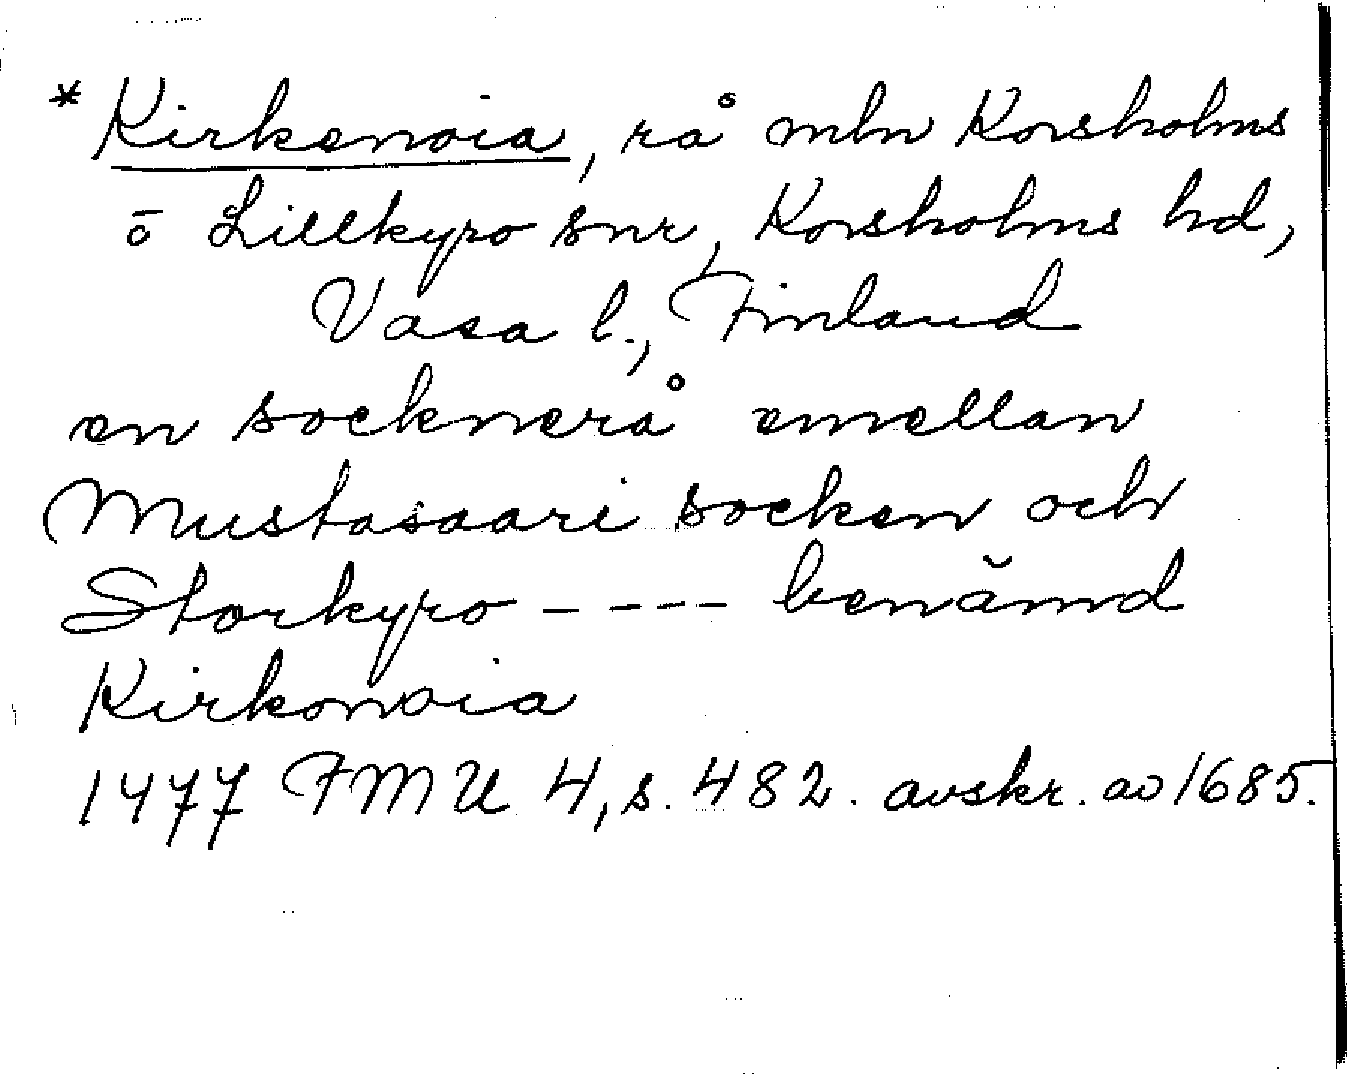 * Kirkenoia, rå mln Korsholms
o Lillkyro snr, Korsholms hd,
Vasa l., Finland
en socknerå emellan
Mustasaari socken och
Storkyro ---- benämd
Kirkonoia
1477 FMU 4, s. 482. avskr. av 1685.